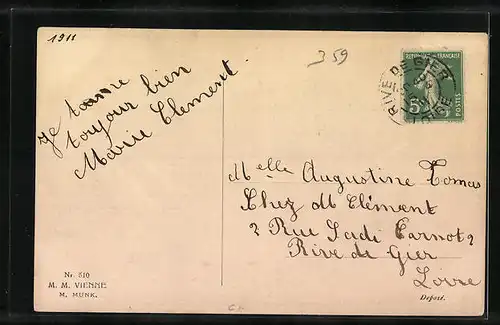 1911
359
RIVE DE GIER
LOIRE
REPUBLIQUE FRANCAISE
5
POSTES
Je t'aime
toujour bien
Marie Clement
Melle Augustine Tomas
Chez M Clément
2 Rue Sadi Carnot 2
Rive de Gier
Loire
Nr. 510
M. M. VIENNE
M. MUNK.
Déposé.